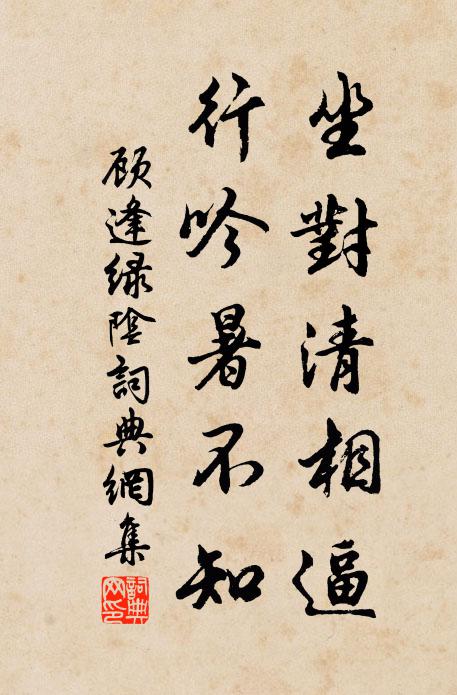 坐對清相逼
行吟暑不知
顾逢緑陰詞典網集
詞典網印